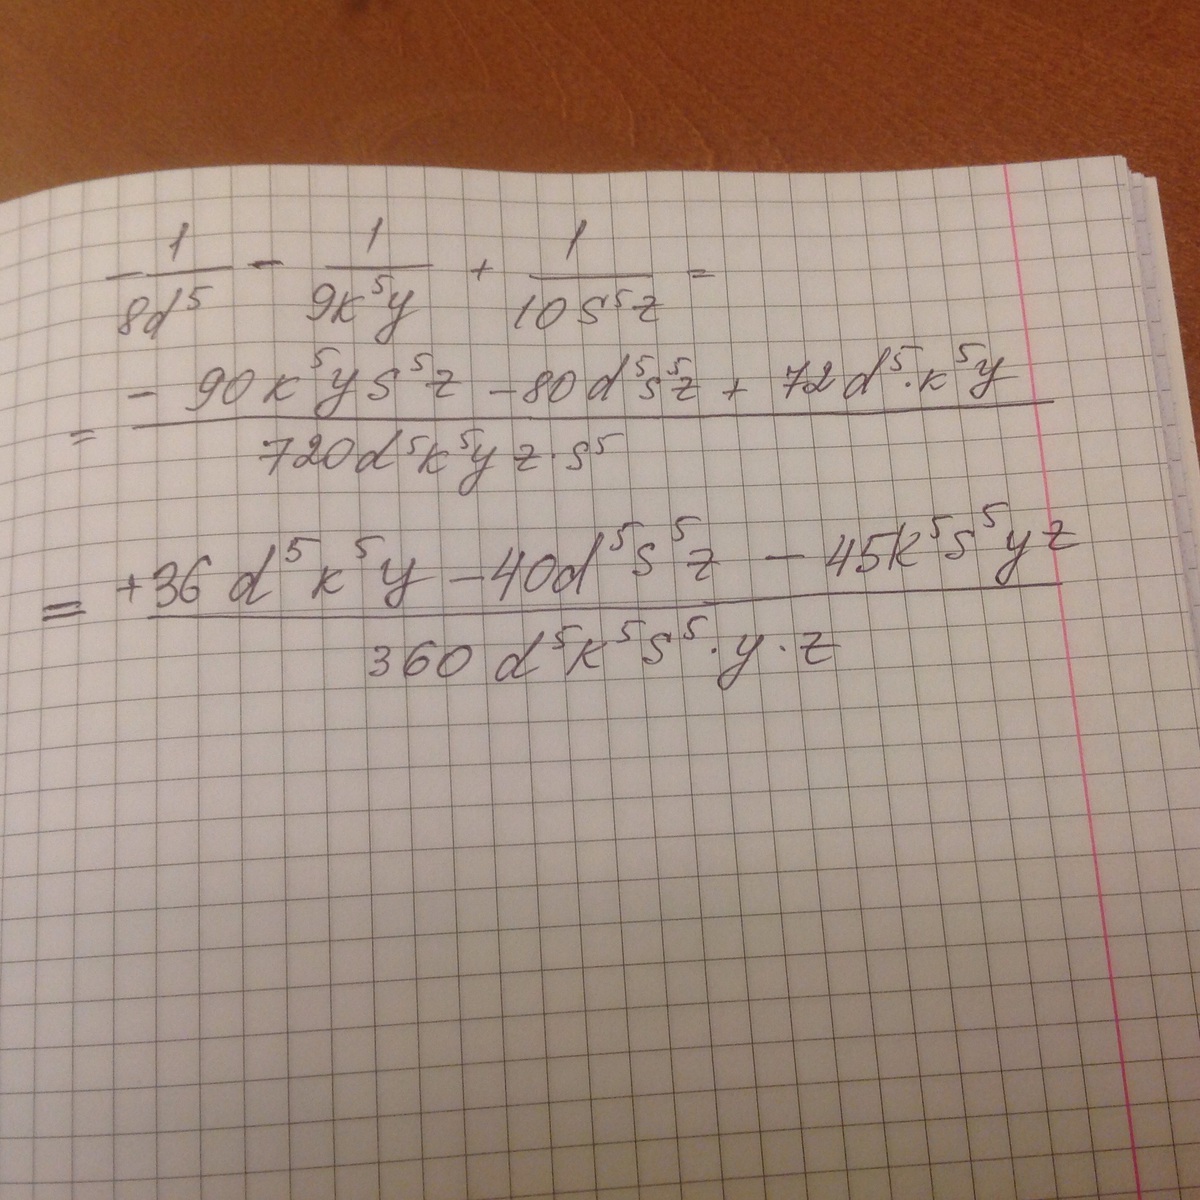 -1/8d⁵ - 1/9k⁵y + 1/10s⁵z =
= (-90k⁵ys⁵z - 80d⁵s⁵z + 72d⁵·k⁵y)/(720d⁵k⁵yz·s⁵)
= (+36d⁵k⁵y - 40d⁵s⁵z - 45k⁵s⁵yz)/(360d⁵k⁵s⁵·y·z)